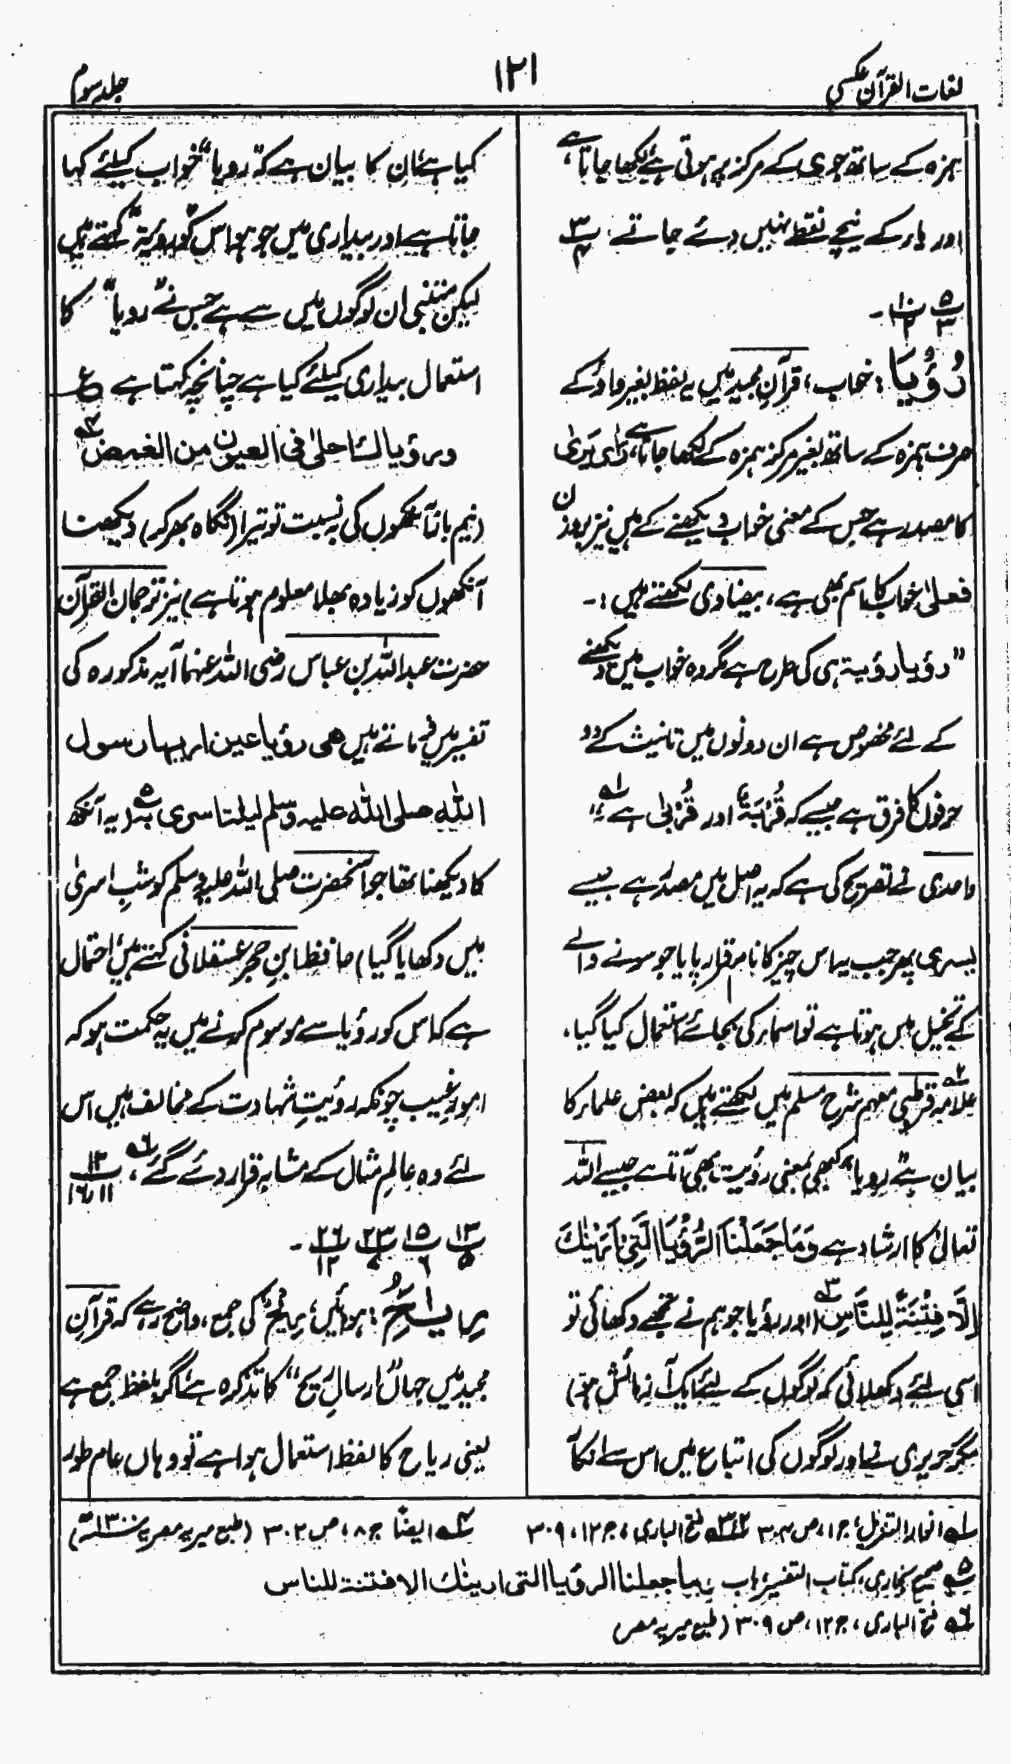 لغات القرآن عکسی
۱۲۱
جلد سوم
ہمزہ کے ساتھ جو ی کے مرکز پر ہوتی ہے لکھا جاتا ہے،
اور یار کے نیچے نقطے نہیں دئے جاتے ۳/۴
۵/۳ ۱۰/۲ -
رُؤْیَا : خواب، قرآنِ مجید میں یہ لفظ بغیر واؤ کے
صرف ہمزہ کے ساتھ بغیر مرکز ہمزہ کے لکھا جاتا ہے، رَایٰ یَرَیٰ
کا مصدر ہے جس کے معنی خواب دیکھنے کے ہیں نیز بروزن
فعلیٰ خواب کا اسم بھی ہے، بیضاوی لکھتے ہیں :-
"رؤیا رؤیۃ ہی کی طرح ہے مگر وہ خواب میں دیکھنے
کے لئے مخصوص ہے ان دونوں میں تانیث کے دو
حرفوں کا فرق ہے جیسے کہ قُرْبَۃٌ اور قُرْبٰی ہے" ۱ھ
واحدی نے تصریح کی ہے کہ یہ اصل میں مصدر ہے جیسے
یسری پھر جب یہ اس چیز کا نام قرار پایا جو سونے والے
کے تخیل میں ہوتا ہے تو اسمار کی بجائے استعمال کیا گیا،
علامہ قرطبی مفہم شرح مسلم میں لکھتے ہیں کہ بعض علمار کا ۲ھ
بیان ہے "رویا" کبھی بمعنی رؤیت بھی آتا ہے جیسے اللہ
تعالیٰ کا ارشاد ہے وَمَا جَعَلْنَا الرُّؤْیَا الَّتِیْ اَرَیْنٰكَ
اِلَّا فِتْنَۃً لِّلنَّاسِ ۳ھ (اور رؤیا جو ہم نے تجھے دکھائی تو
اسی لئے دکھلائی کہ لوگوں کے لئے ایک آزمائش ہو)
مگر حریری نے اور لوگوں کی اتباع میں اس سے انکار
کیا ہے ان کا بیان ہے کہ "رویا" خواب کیلئے کہا
جاتا ہے اور بیداری میں جو ہو اس کو "رویۃ" کہتے ہیں
لیکن متنبی ان لوگوں میں سے ہے جس نے "رویا" کا
استعمال بیداری کیلئے کیا ہے چنانچہ کہتا ہے ع
ورؤیاك احلیٰ فی العیون من الغمض ۴ھ
(نیم باز آنکھوں کی بہ نسبت تو تیرا (نگاہ بھر کر) دیکھنا
آنکھوں کو زیادہ بھلا معلوم ہوتا ہے) نیز ترجمان القرآن
حضرت عبداللہ بن عباس رضی اللہ عنہما آیہ مذکورہ کی
تفسیر میں فرماتے ہیں ھی رؤیا عین اریہا رسول
اللہ صلی اللہ علیہ وسلم لیلۃ اسری بہ ۵ھ (یہ آنکھ
کا دیکھنا تھا جو آنحضرت صلی اللہ علیہ وسلم کو شبِ اسریٰ
میں دکھایا گیا) حافظ ابن حجر عسقلانی کہتے ہیں "احتمال
ہے کہ اس کو رؤیا سے موسوم کرنے میں یہ حکمت ہو کہ
امورِ غیب چونکہ رؤیتِ شہادت کے مخالف ہیں اس
لئے وہ عالمِ مثال کے مشابہ قرار دئے گئے" ۶ھ ۱۲/۱۱،۱۶
۱۳/۵ ۱۵/۶ ۲۳/۷ ۲۶/۱۲ -
رِیَاحٌ : ہوائیں، ریح کی جمع، واضح رہے کہ قرآنِ
مجید میں جہاں "ارسالِ ریح" کا تذکرہ ہے اگر بلفظ جمع ہے
یعنی ریاح کا لفظ استعمال ہوا ہے تو وہاں عام طور
۱ھ انوار التنزیل، ج۱، ص۳۰۴ ۲،۳ھ فتح الباری، ج۱۲، ۳۰۹ ۴ھ ایضاً ج۸، ص ۳۰۲ (طبع میریہ مصریہ ۱۳۰۰ھ)
۵ھ صحیح بخاری، کتاب التفسیر، باب وما جعلنا الرؤیا التی ارینك الا فتنۃ للناس
۶ھ فتح الباری، ج۱۲، ص ۳۰۹ (طبع میریہ مصر)